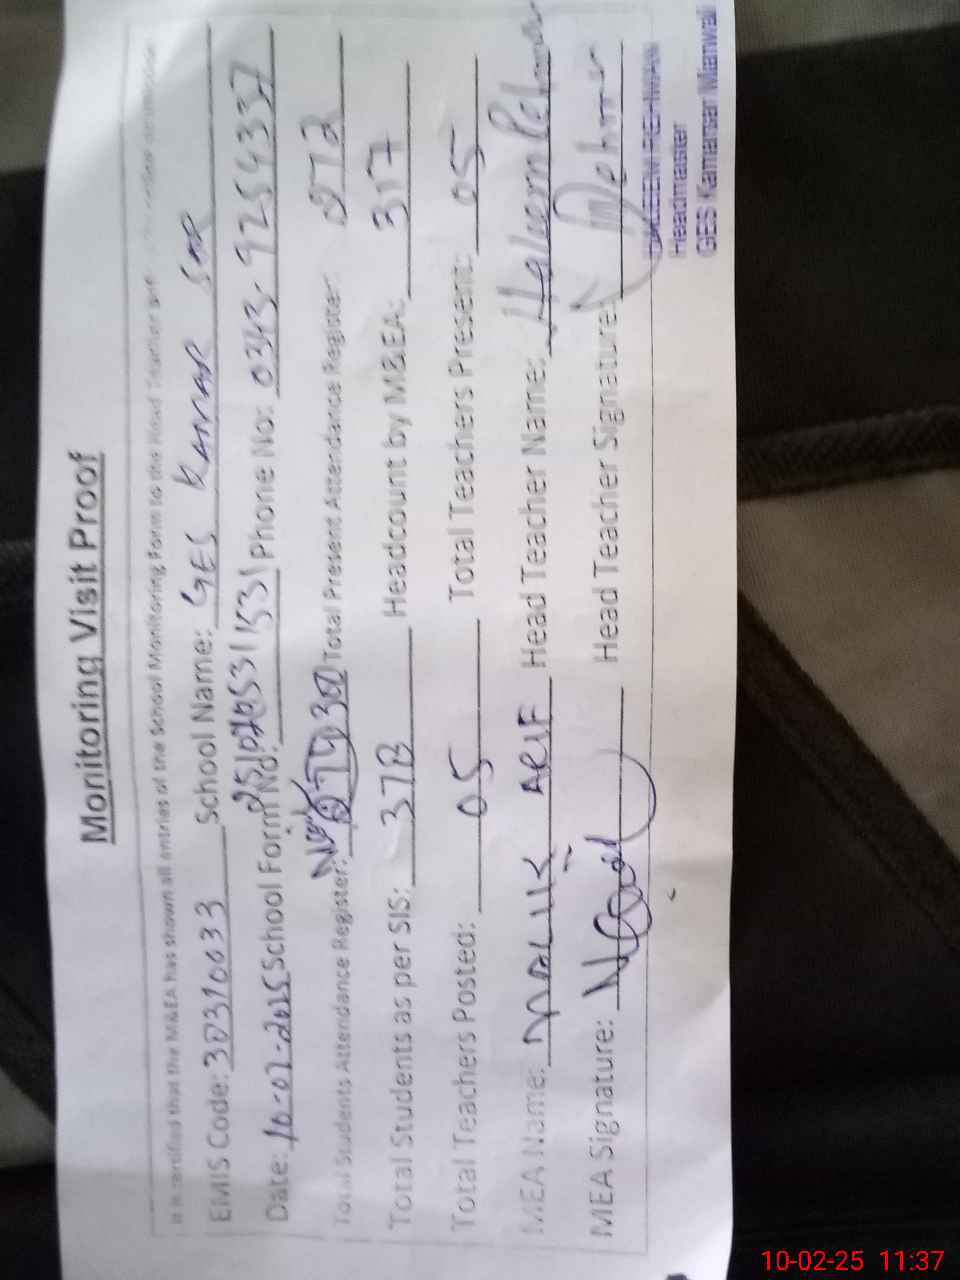 Monitoring Visit Proof
It is certified that the M&EA has shown all entries of the School Monitoring Form to the Head Teacher and
EMIS Code: 30310033 School Name: GES KAMAR SAR
Date: 10-02-2025 School Form No: Phone No: 0343-9254337
Total Students Attendance Register: 302 Total Present Attendance Register: 272
Total Students as per SIS: 373 Headcount by M&EA: 317
Total Teachers Posted: 05 Total Teachers Present: 05
MEA Name: MALIK ARIF Head Teacher Name: Haleem Rehman
MEA Signature: Head Teacher Signature:
HALEEM REHMAN
Headmaster
GES Kamarsar Mianwali
10-02-25 11:37